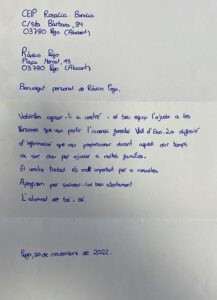 CEIP Rosalia Bondia
C/sta Bàrbara, 34
03780 Pego (Alacant)
Ràdio Pego
Plaça Mercat, 13
03780 Pego (Alacant)
Benvolgut personal de Ràdio Pego,
Voldríem agrair-li a vosté i el seu equip l'ajuda a les
persones que van patir l'incendi forestal Vall d'Ebo. La difusió
d'informació que van proporcionar durant aquell dur temps
va ser clau per ajudar a moltes famílies.
El vostre treball és molt important per a nosaltres.
Acomiadem per saludar-los ben atentament
L'alumnat de 5é i 6é.
Pego, 30 de novembre de 2022.